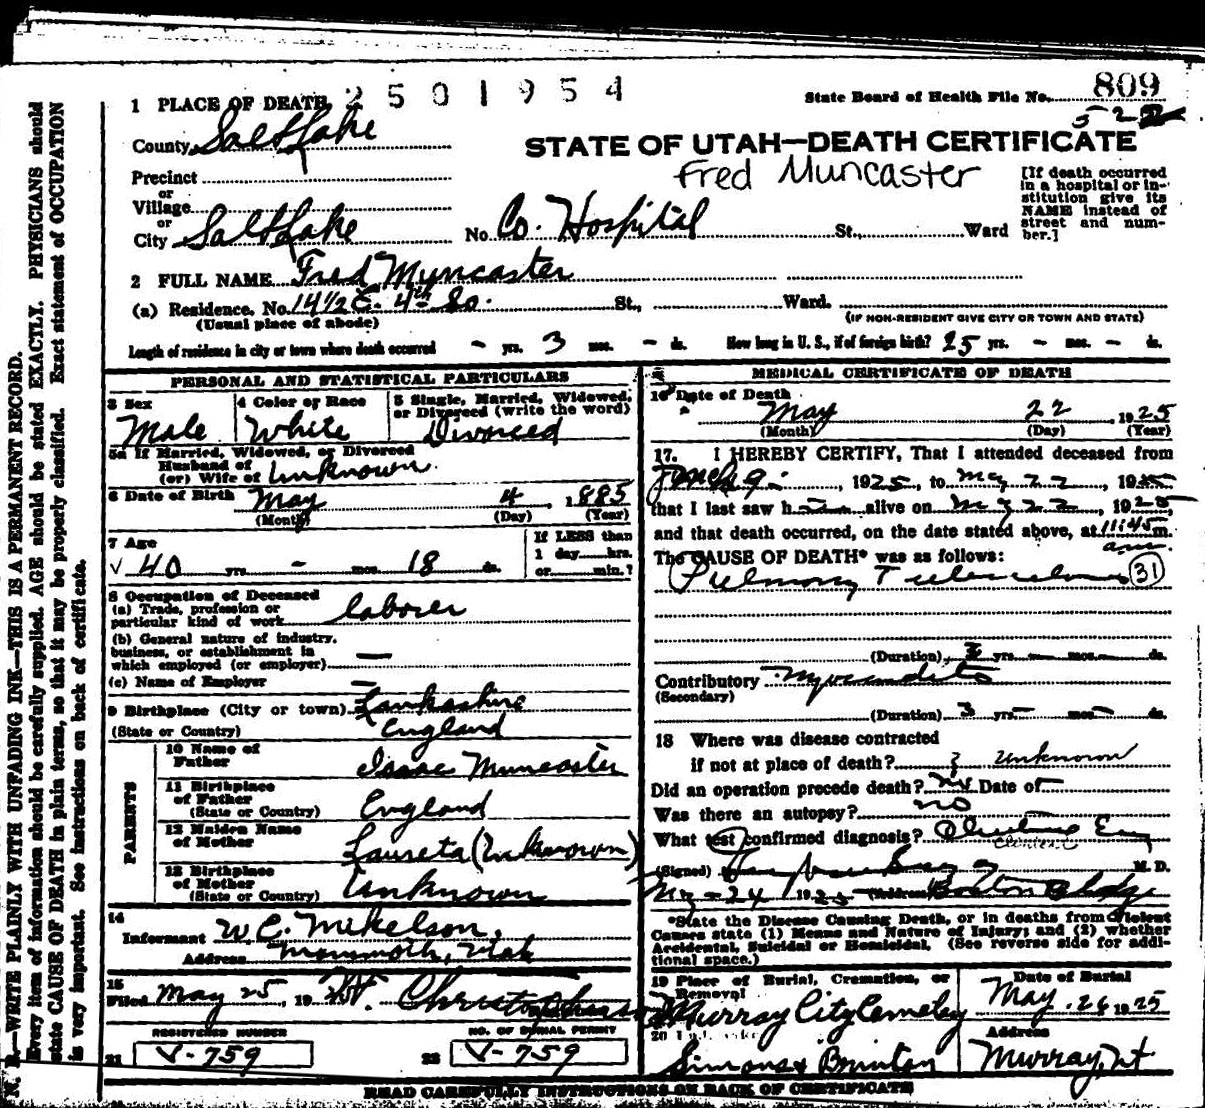 2501954
State Board of Health File No. 809
52
1 PLACE OF DEATH
County Salt Lake
STATE OF UTAH—DEATH CERTIFICATE
Fred Muncaster
Precinct
or
Village
or
City Salt Lake No. Co. Hospital St., Ward
[If death occurred
in a hospital or in-
stitution give its
NAME instead of
street and num-
ber.]
2 FULL NAME Fred Muncaster
(a) Residence. No. 14 1/2 E. 4th So. St., Ward.
(Usual place of abode) (IF NON-RESIDENT GIVE CITY OR TOWN AND STATE)
Length of residence in city or town where death occurred - yrs. 3 mos. - ds. How long in U. S., if of foreign birth? 25 yrs. - mos. - ds.
PERSONAL AND STATISTICAL PARTICULARS
3 Sex
Male
4 Color or Race
White
5 Single, Married, Widowed,
or Divorced (write the word)
Divorced
5a If Married, Widowed, or Divorced
Husband of
(or) Wife of Unknown.
6 Date of Birth May 4, 1885
(Month) (Day) (Year)
7 Age
40 yrs. - mos. 18 ds.
If LESS than
1 day.....hrs.
or.....min.?
8 Occupation of Deceased
(a) Trade, profession or
particular kind of work laborer
(b) General nature of industry,
business, or establishment in
which employed (or employer) —
(c) Name of Employer —
9 Birthplace (City or town) Lankashire
(State or Country) England
PARENTS
10 Name of
Father Isaac Muncaster
11 Birthplace
of Father
(State or Country) England
12 Maiden Name
of Mother Laureta (Unknown)
13 Birthplace
of Mother
(State or Country) Unknown
14
Informant W. C. Mikelson,
Address Mammoth, Utah
15
Filed May 25, 19
REGISTERED NUMBER
21 V-759
NO. OF BURIAL PERMIT
22 V-759
MEDICAL CERTIFICATE OF DEATH
16 Date of Death
May 22 1925
(Month) (Day) (Year)
17. I HEREBY CERTIFY, That I attended deceased from
, 1925, to May 22, 1925
that I last saw h alive on May 22, 1925,
and that death occurred, on the date stated above, at 11:45 m.
am.
The CAUSE OF DEATH* was as follows:
Pulmonary Tuberculosis 31
(Duration) 3 yrs. — mos. — ds.
Contributory Myocarditis
(Secondary)
(Duration) 3 yrs. — mos. — ds.
18 Where was disease contracted
if not at place of death? ? Unknown
Did an operation precede death? no Date of —
Was there an autopsy? no
What test confirmed diagnosis?
(Signed) M. D.
May - 24, 1925 (Address) Boston Bldg
*State the Disease Causing Death, or in deaths from Violent
Causes state (1) Means and Nature of Injury; and (2) whether
Accidental, Suicidal or Homicidal. (See reverse side for addi-
tional space.)
19 Place of Burial, Cremation, or
Removal
Murray City Cemetery
Date of Burial
May. 26 1925
20
Simons & Brinton
Address
Murray, Ut
READ CAREFULLY INSTRUCTIONS ON BACK OF CERTIFICATE
N. B.—WRITE PLAINLY WITH UNFADING INK—THIS IS A PERMANENT RECORD.
Every item of information should be carefully supplied. AGE should be stated EXACTLY. PHYSICIANS should
state CAUSE OF DEATH in plain terms, so that it may be properly classified. Exact statement of OCCUPATION
is very important. See instructions on back of certificate.